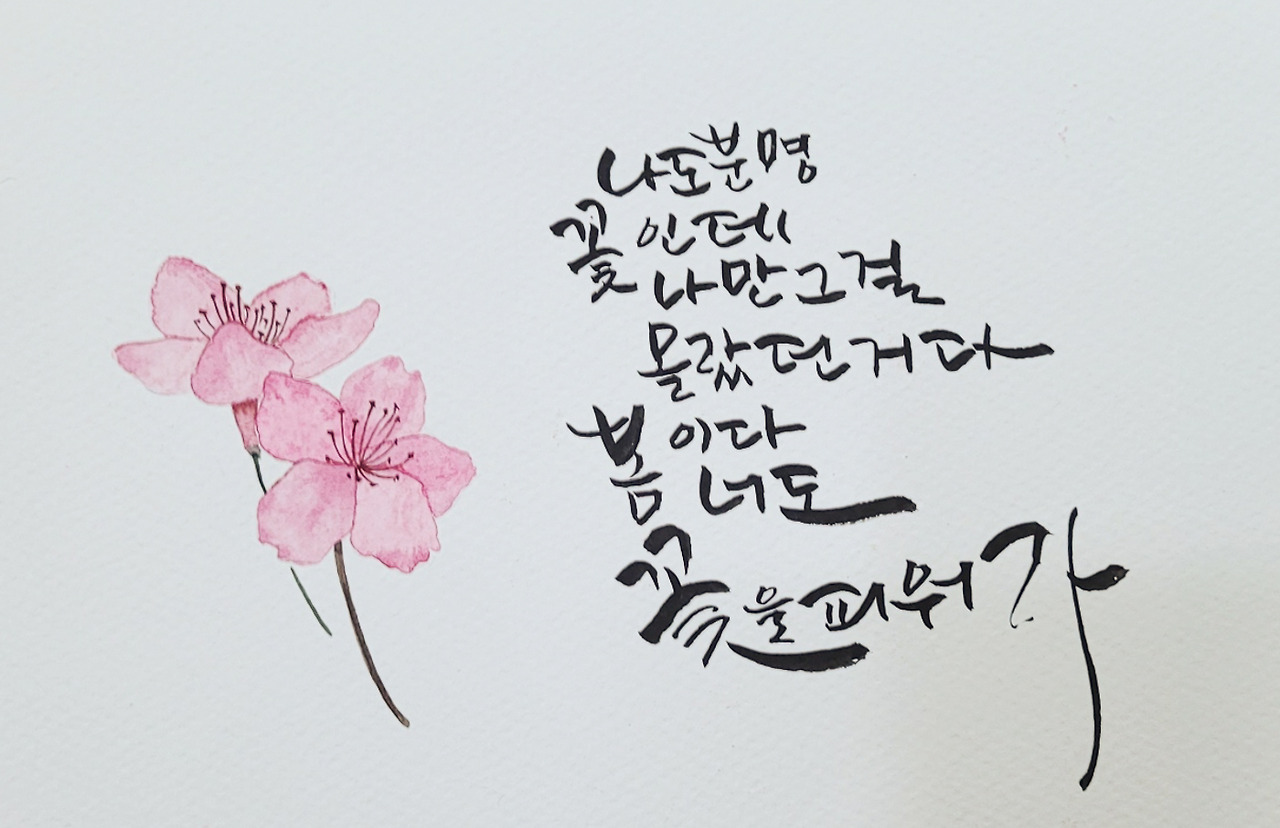 나도분명
꽃인데
나만그걸
몰랐던거다
봄이다
너도
꽃을피워라